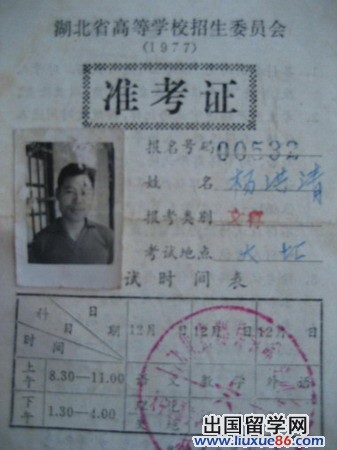 湖北省高等学校招生委员会
(1977)
准考证
报名号码 00532
姓 名 杨洪清
报考类别 文科
考试地点
试时间表
科 日
目 期 12月 日 12月 日 12月 日
时 间
上午 8.30—11.00 语 文 数 学
下午 1.30—4.00
出国留学网
www.liuxue86.com